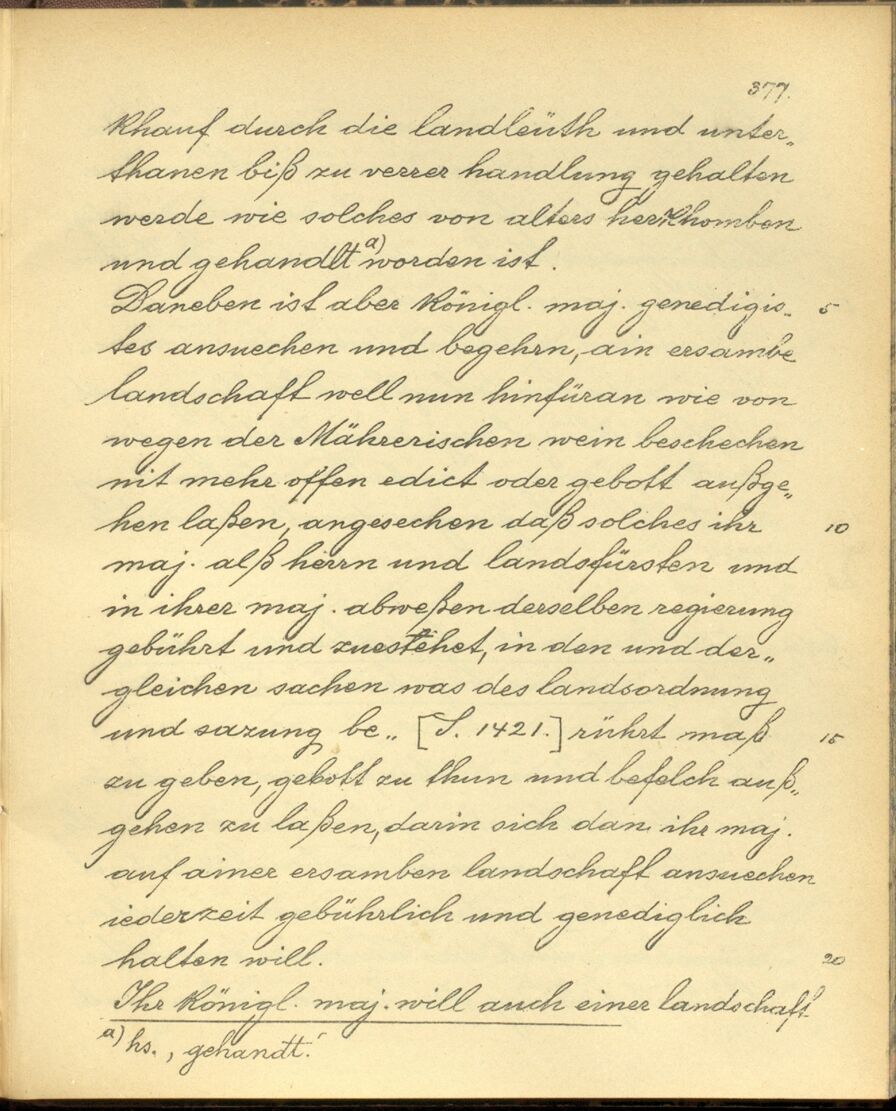 377.
khauf durch die landleüth und unter„
thanen biß zu verrer handlung gehalten
werde wie solches von alters herkhomben
und gehandlt a) worden ist.
Daneben ist aber königl. maj. genedigis„ 5
tes ansuechen und begehrn, ain ersambe
landschaft well nun hinfüran wie von
wegen der Mährerischen wein beschechen
nit mehr offen edict oder gebott außge„
hen laßen, angesechen daß solches ihr 10
maj. alß herrn und landsfürsten und
in ihrer maj. abweßen derselben regierung
gebührt und zuestehet, in den und der„
gleichen sachen was des landsordnung
und sazung be„ [S. 1421.] rührt maß 15
zu geben, gebott zu thun und befelch auß„
gehen zu laßen, darin sich dan ihr maj.
auf ainer ersamben landschaft ansuechen
iederzeit gebührlich und genediglich
halten will. 20
Ihr königl. maj. will auch einer landschaft
a) hs. „gehandt.“